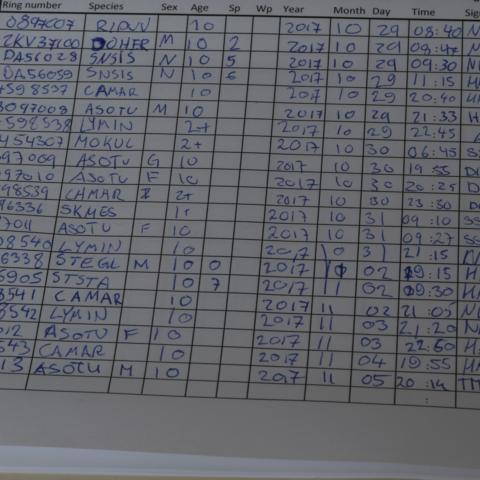 Ring number Species Sex Age Sp Wp Year Month Day Time
0897007 10 2017 10 29 08:40
ZKV37100 M 10 2 2017 10 29 09:47
DA56028 SNSIS N 10 5 2017 10 29 09:30
DA56059 SNSIS N 10 6 2017 10 29 11:15
598537 CAMAR 10 2017 10 29 20:40
3097009 ASOTU M 10 2017 10 29 21:33
598538 LYMIN 2+ 2017 10 29 22:45
454307 MOKUL 2+ 2017 10 30 06:45
97009 ASOTU G 10 2017 10 30 19:55
97010 ASOTU F 10 2017 10 30 20:25
98539 CAMAR 2+ 2017 10 30 23:30
96336 SKMES 1+ 2017 10 31 09:10
7011 ASOTU F 10 2017 10 31 09:27
8540 LYMIN 10 2017 10 31 21:15
6338 STEGL M 10 0 2017 02 09:15
5905 STSTA 10 7 2017 11 02 09:30
8541 CAMAR 10 2017 11 02 21:05
8542 LYMIN 10 2017 11 03 21:20
012 ASOTU F 10 2017 11 03 22:50
543 CAMAR 10 2017 11 04 19:55
13 ASOTU M 10 2017 11 05 20:14